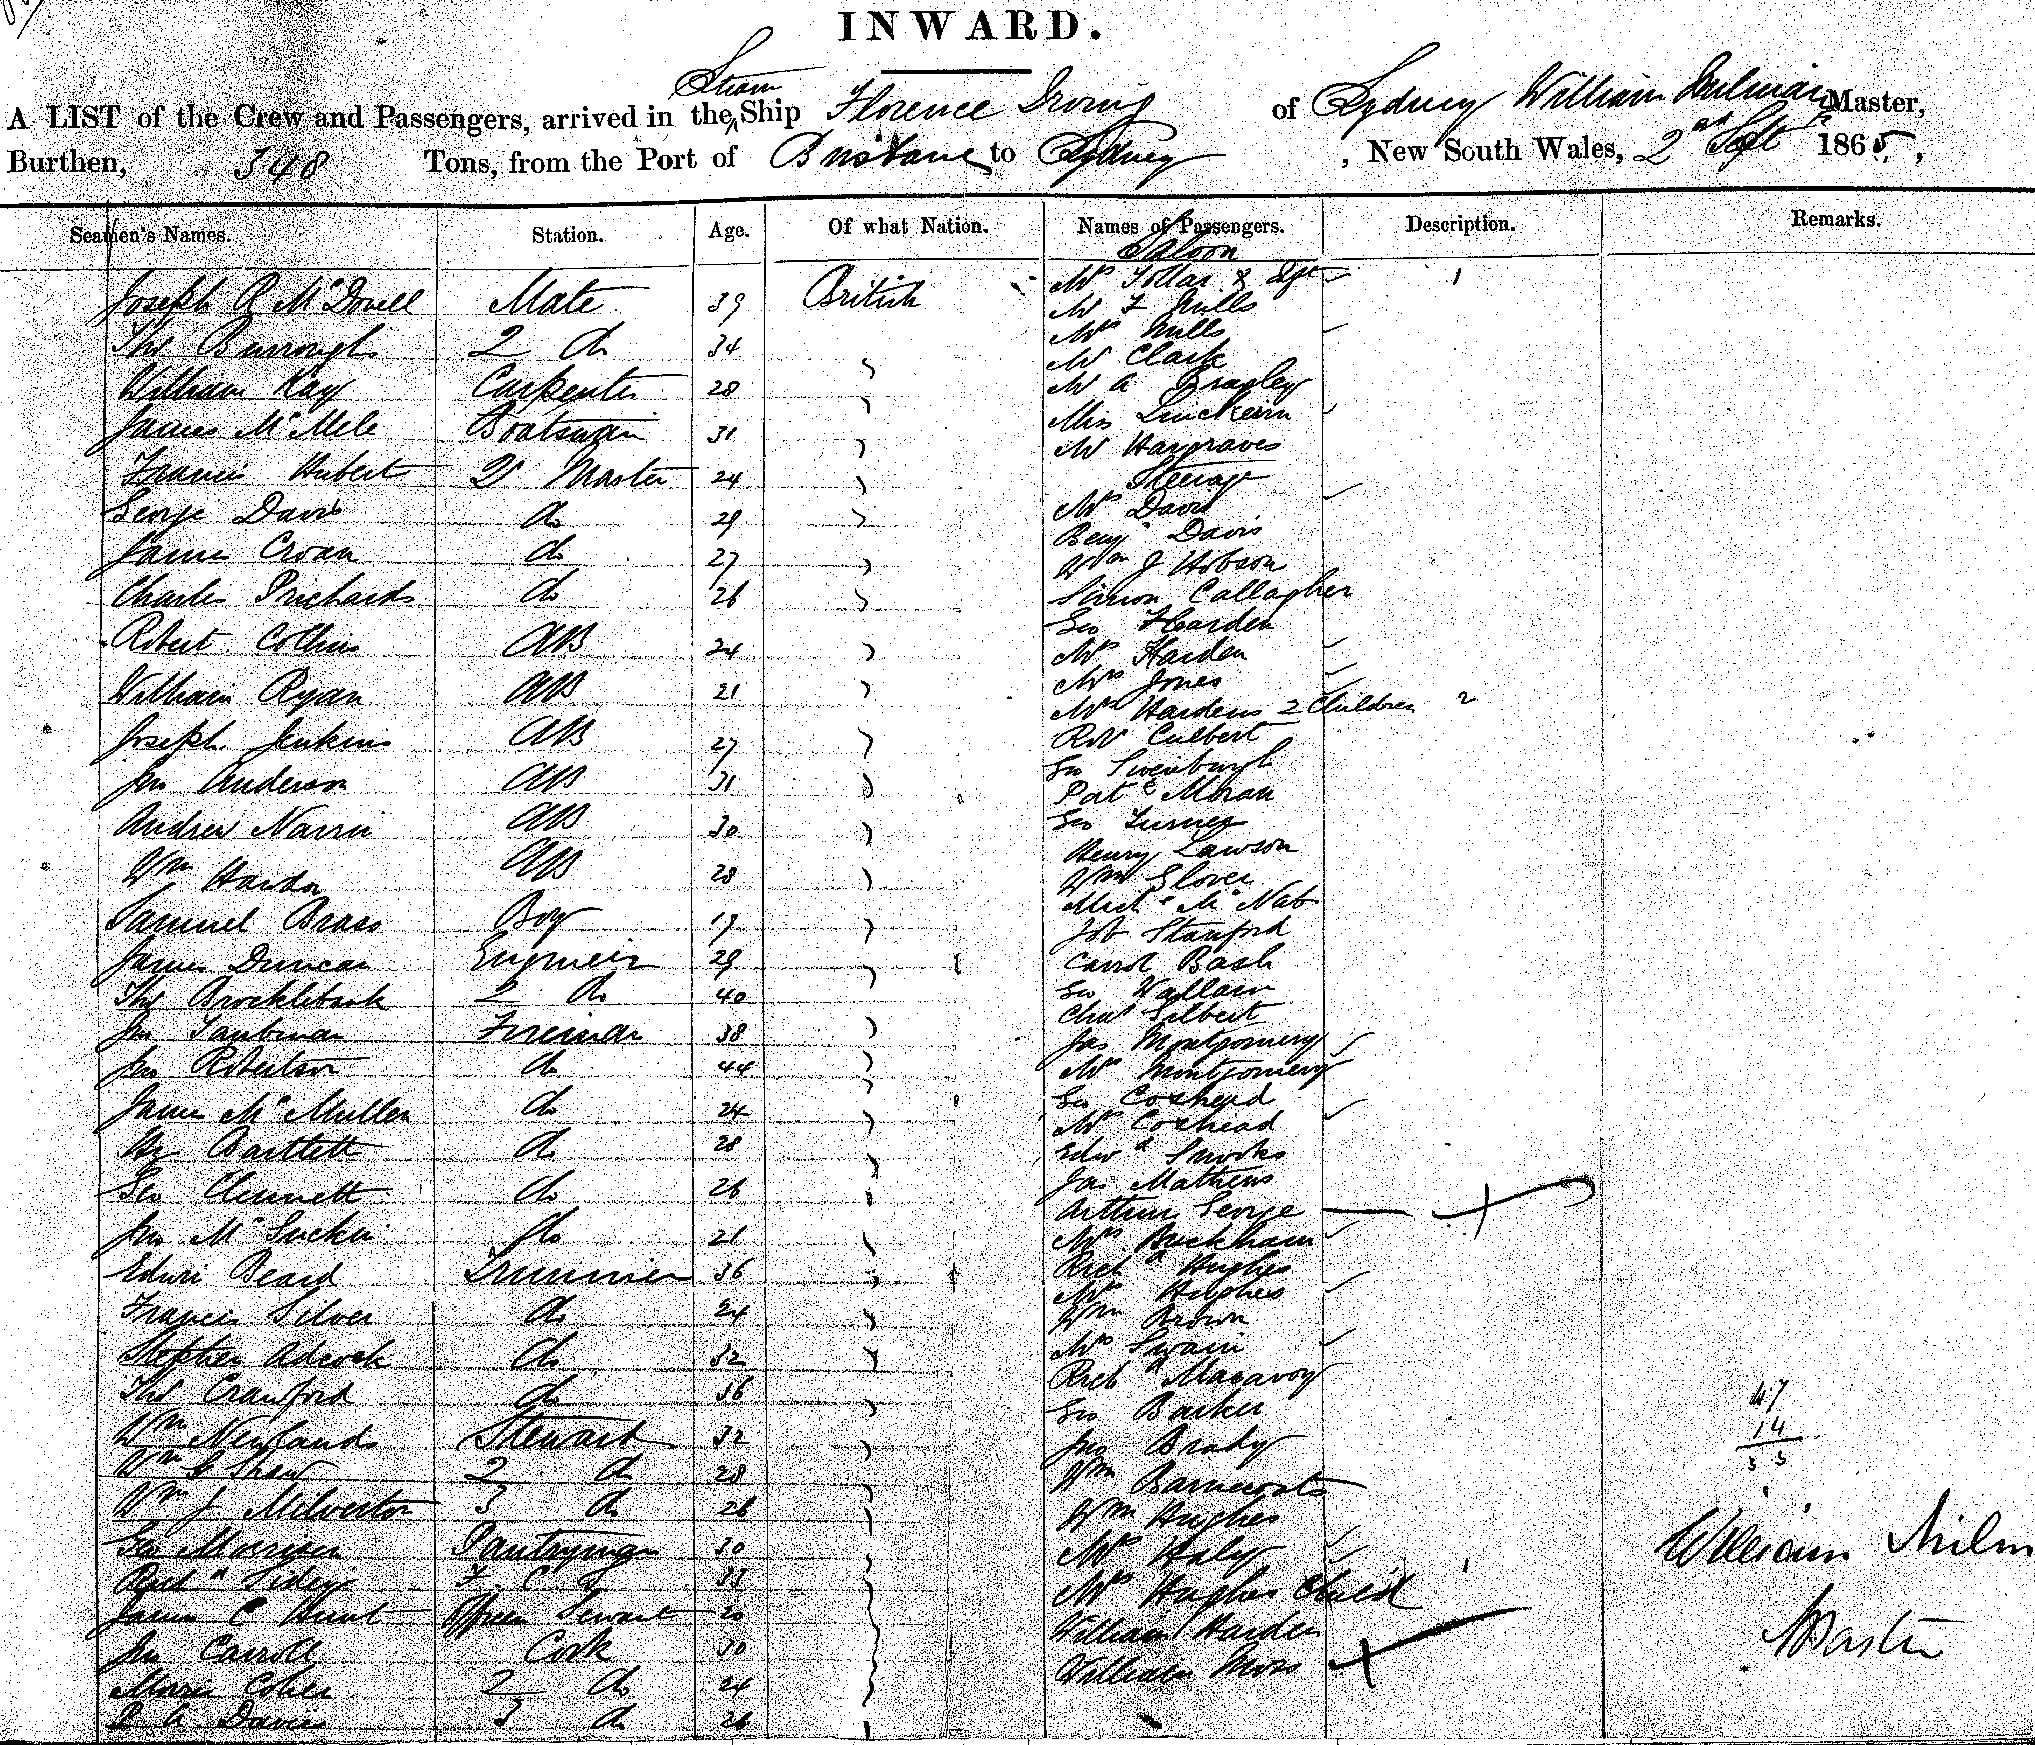 INWARD.
Steam
A LIST of the Crew and Passengers, arrived in the Ship Florence Irving of Sydney William Milman Master,
Burthen, 348 Tons, from the Port of Brisbane to Sydney, New South Wales, 2nd Sept 1865,
Seamen's Names. Station. Age. Of what Nation. Names of Passengers. Description. Remarks.
Saloon
Joseph R McDovell Mate 39 British
Thos Burrough 2 do 34
William Kay Carpenter 28
James McMele Boatswain 31
Francis Hubert Qr Master 24
George Davis do 29
James Croan do 27
Charles Prichards do 26
Robert Collins AB 24
William Ryan AB 21
Joseph Jenkins AB 27
Jno Anderson AB 31
Andrew AB 30
Wm Hardor AB 28
Samuel Brass Boy 17
James Duncan Engineer 29
Thos Brocklebank 2 do 40
Jno Taubman Fireman 38
Jno Robertson do 44
James McMullen do 24
Hy Bartlett do 28
Geo Clennett do 26
Jno McLuckie do 21
Edwin Beard Trimmer 36
Francis Silver do 24
Stephen Adcock do 32
Thos Crawford do 36
Wm Neylands Steward 32
Wm G Shaw 2 do 28
Wm J Milverton 3 do 26
Geo Morrison Pantryman 30
Richd Sidey F. C. 33
James C Hunt Officers Servant 20
Jno Carroll Cook 30
Marc Cohen 2 do 24
Davies 3 do 26
Mrs Tollar & Dgt 1
Mr F Mills
Mrs Mills
Mr Clark
Mr A Bragley
Miss
Mr Hargraves
Steerage
Mrs Davis
Benjn Davis
Wm J Hobson
Simon Callagher
Geo Harden
Mrs Harden
Mrs Jones
Mrs Hardens 2 Children 2
Robt Culbert
Geo Swenburgh
Patk Moran
Geo Turner
Henry Lawson
Wm Glover
Michl McNab
Job Stanford
Carrol Bash
Geo Wallace
Chas Gilbert
Jas Montgomery
Mrs Montgomery
Geo Coxhead
Mrs Coxhead
Edwd Snooks
Jas Mathews
Arthur George
Mrs Buckham
Richd Hughes
Mrs Hughes
Wm Brown
Mrs Swain
Richd Macavoy
Geo Barker
Jno Brady
Wm Barncoats
Wm Hughes
Mrs Haly
Mrs Hughes Child 1
William Harden
William Moss
47
14
33
William Milm
Master